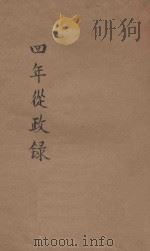 研狗
四年從政録
mtoou.info